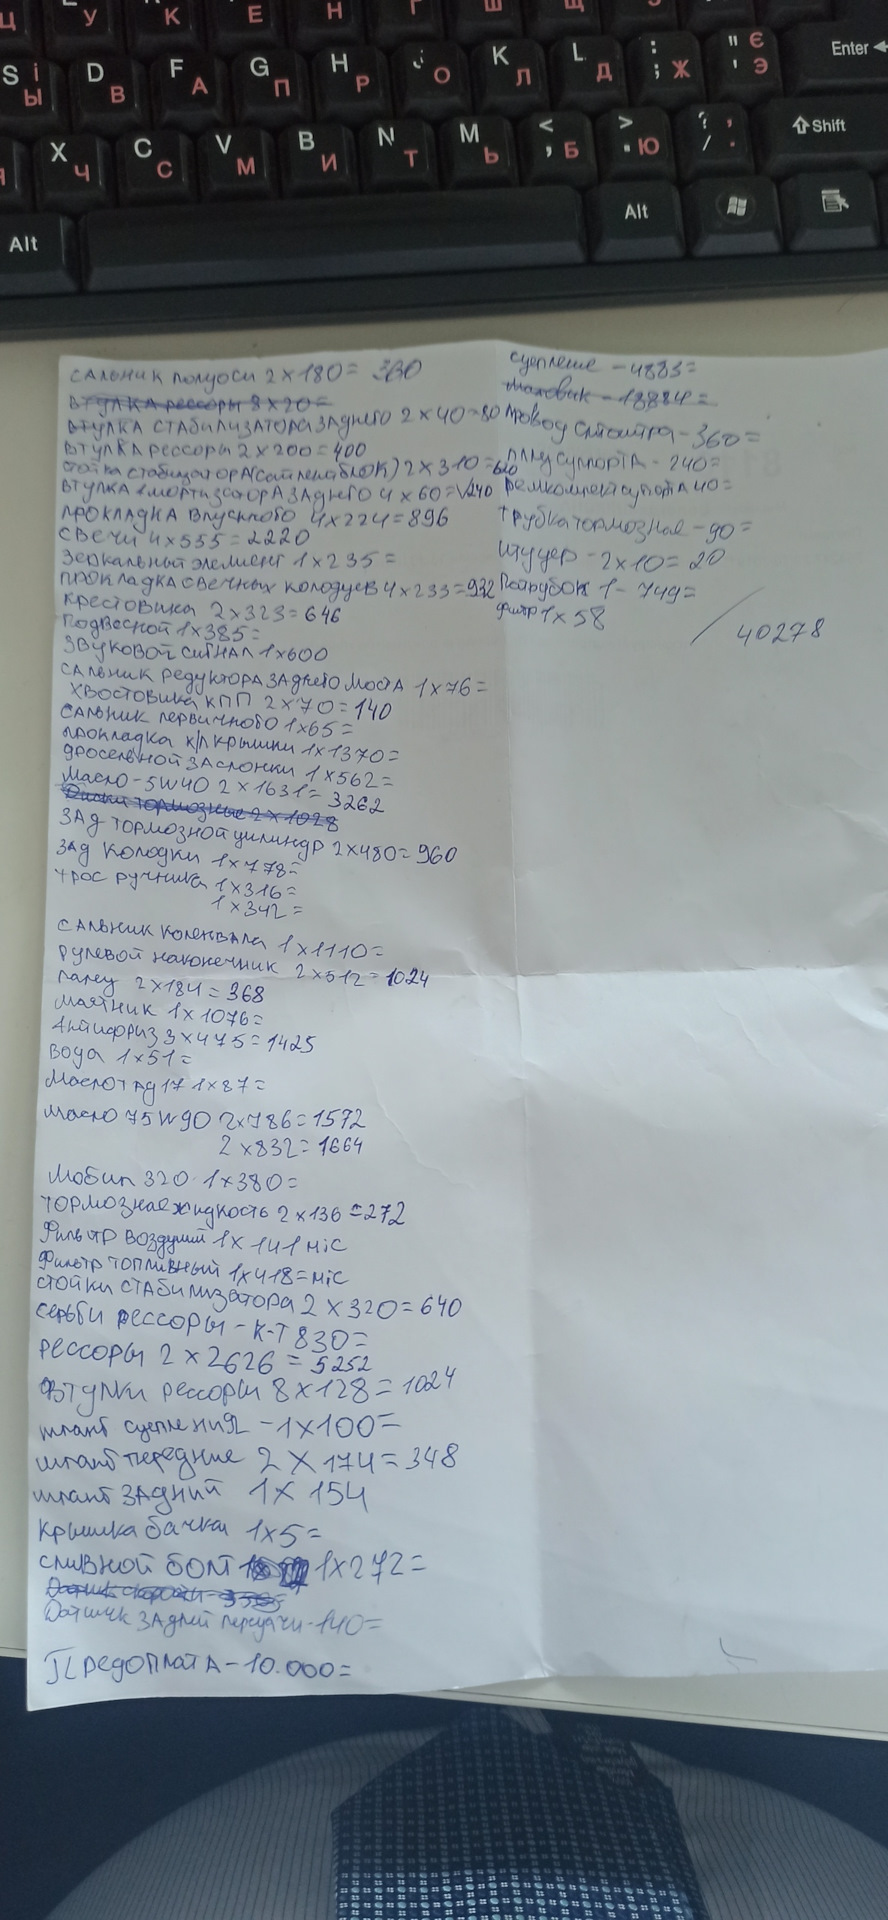 Ц У К Е Н Г Ш Щ
S і Ы D В F А G П H Р J О K Л L Д : ; Ж " ' Є Э Enter
X Ч C С V М B И N Т M Ь < , Б > . Ю ? / , . Shift
Alt Alt
САЛЬНИК полуоси 2 x 180 = 360
ВТУЛКА рессоры 8 x 20 =
ВТУЛКА СТАБИЛИЗАТОРА ЗАДНЕГО 2 x 40 = 80
ВТУЛКА рессоры 2 x 200 = 400
стойка стабилизатора (сайленблок) 2 x 310 = 620
ВТУЛКА амортизатора ЗАДНЕГО 4 x 60 = 240
ПРОКЛАДКА Впускного 4 x 224 = 896
СВЕЧИ 4 x 555 = 2220
Зеркальный элемент 1 x 235 =
ПРОКЛАДКА свечных колодцев 4 x 233 = 932
Крестовина 2 x 323 = 646
Подвесной 1 x 385 =
ЗВУКОВОЙ СИГНАЛ 1 x 600
САЛЬНИК редуктора ЗАДНЕГО моста 1 x 76 =
Хвостовика КПП 2 x 70 = 140
САЛЬНИК первичного 1 x 65 =
прокладка кл крышки 1 x 1370 =
дросельной заслонки 1 x 562 =
Масло - 5W40 2 x 1631 = 3262
Диски тормозные 2 x 1028
ЗАД тормозной цилиндр 2 x 480 = 960
ЗАД колодки 1 x 778 =
трос ручника 1 x 316 =
1 x 342 =
САЛЬНИК коленвала 1 x 1110 =
Рулевой наконечник 2 x 512 = 1024
палец 2 x 184 = 368
Маятник 1 x 1076 =
Антифриз 3 x 475 = 1425
Вода 1 x 51 =
Масло тад 17 1 x 87 =
Масло 75W90 2 x 786 = 1572
2 x 832 = 1664
Мобил 320 1 x 380 =
ТОРМОЗНАЯ жидкость 2 x 136 = 272
Фильтр воздуший 1 x 141 міс
Фильтр топливный 1 x 418 = міс
СТОЙКИ СТАБИЛИЗАТОРА 2 x 320 = 640
серьги рессоры - К-Т 830 =
Рессоры 2 x 2626 = 5252
ВТУЛКИ рессоры 8 x 128 = 1024
шланг сцепления - 1 x 100 =
шланг передние 2 x 174 = 348
шланг ЗАДНИЙ 1 x 154
Крышка бачка 1 x 5 =
СЛИВНОЙ БОЛТ 1 x 272 =
Датчик ЗАДНЕЙ передачи - 140 =
ПРЕДОПЛАТА - 10.000 =
сцепление - 4883 =
Маховик - 18884 =
Провод стартера - 360 =
палец суппорта - 240 =
ремкомплект суппорта 40 =
Трубка тормозная - 90 =
штуцер - 2 x 10 = 20
Патрубок 1 - 749 =
фильтр 1 x 58
40278